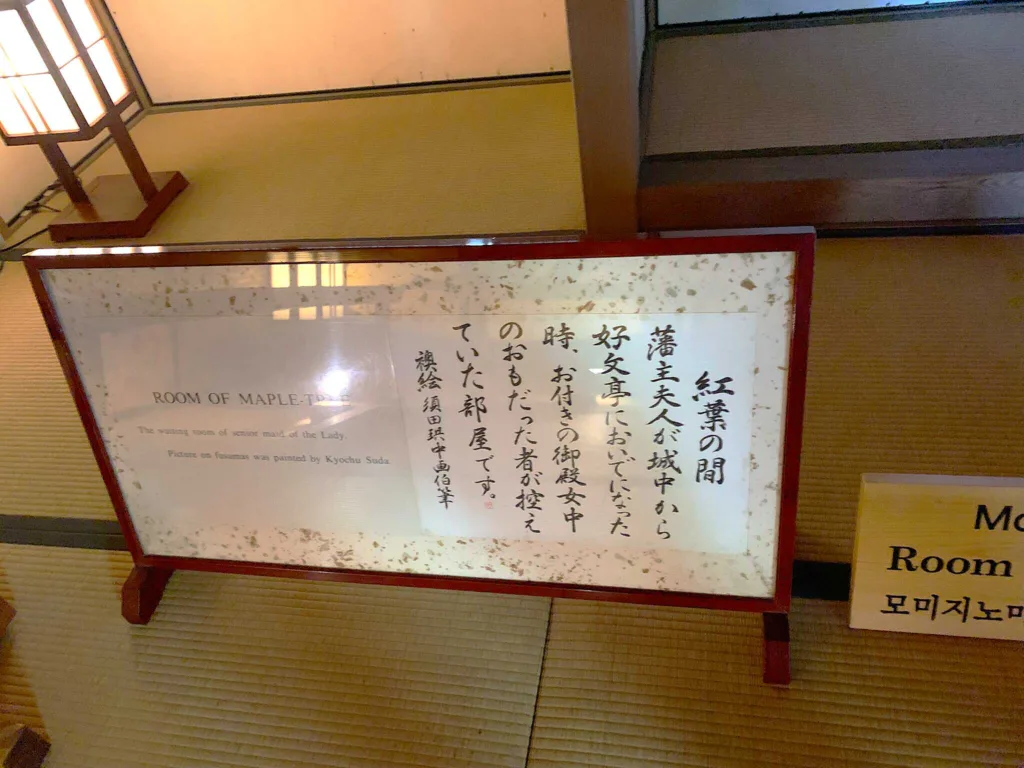 紅葉の間
藩主夫人が城中から
好文亭においでになった
時、お付きの御殿女中
のおもだった者が控え
ていた部屋です。
襖絵 須田珙中画伯筆
ROOM OF MAPLE-TREE
The waiting room of senior maid of the Lady.
Picture on fusumas was painted by Kyochu Suda
Mo
Room
모미지노마